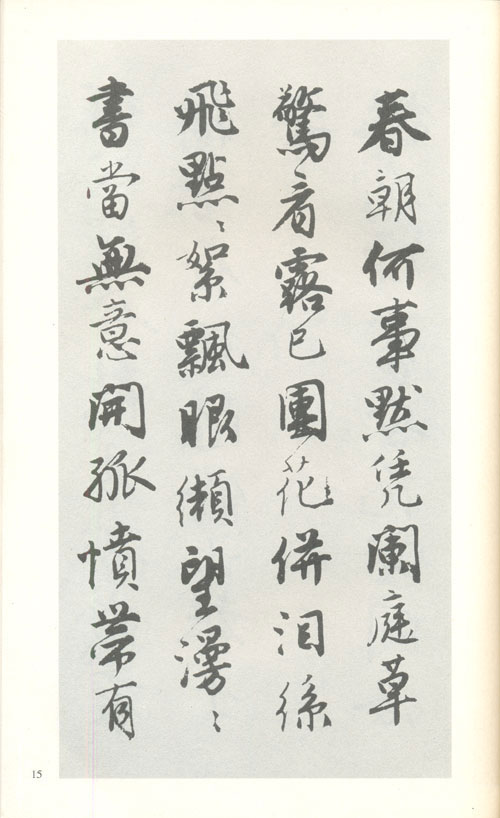 春朝何事默凭闌庭草
驚看露已團花併泪絲
飛點〻絮飄眼纈望漫〻
書當無意開孤憤帶有
15